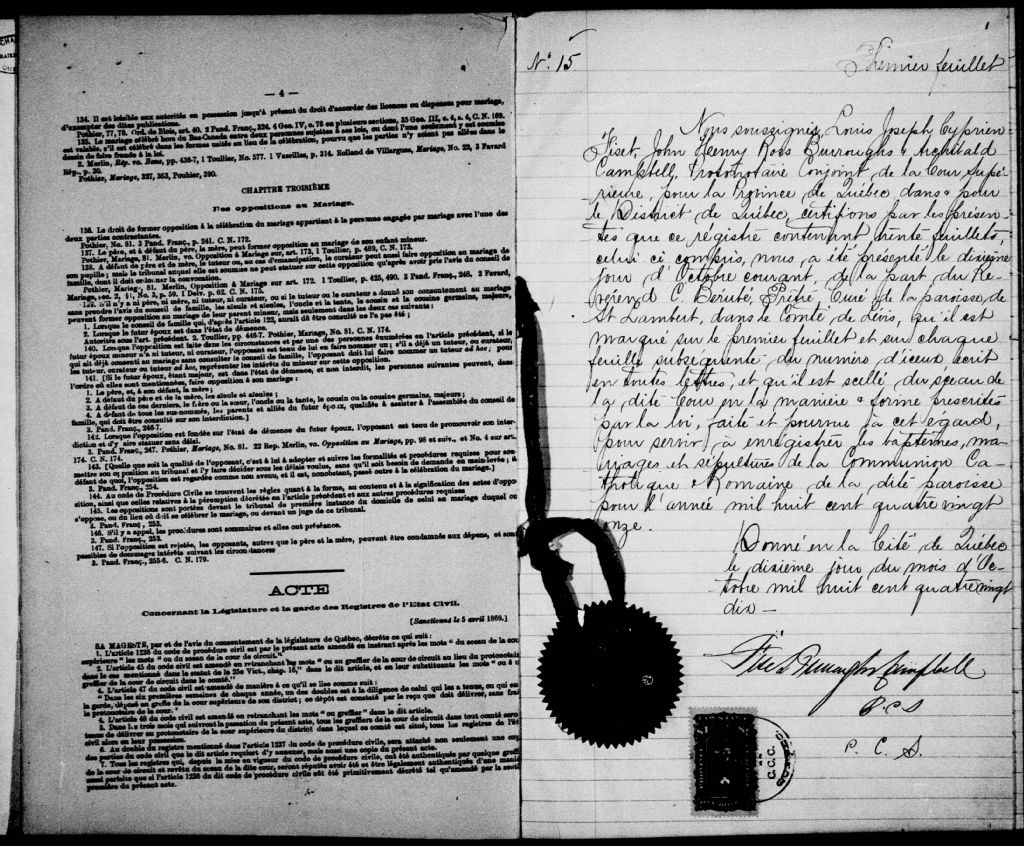 — 4 —
134. Il est loisible aux autorités en possession jusqu'à présent du droit d'accorder des licences ou dispenses pour mariage,
d'exempter des dites publications.
Pothier, 77, 78. Ord. de Blois, art. 40. 2 Pand. Franç., 324. 4 Geo. IV, c. 76 en plusieurs sections, 35 Geo. III, c. 4, s. 4, C. N. 169.
135. Le mariage célébré hors du Bas-Canada entre deux personnes sujettes à ses lois, ou dont l'une seulement y est soumise
est valable, s'il est célébré dans les formes usitées au lieu de la célébration, pourvu que les parties n'y soient pas allées dans le
dessein de faire fraude à la loi.
2. Merlin, Rép. vo. Bans, pp. 435-7, 1 Toullier, No. 577. 1 Vazeilles, p. 314. Rolland de Villargues, Mariage, No. 22, 3 Favard
Rép., p. 30.
Pothier, Mariage, 327, 363, Pouhier, 390.
CHAPITRE TROISIÈME
Des oppositions au Mariage.
136. Le droit de former opposition à la célébration du mariage appartient à la personne engagée par mariage avec l'une des
deux parties contractantes.
Pothier, No. 81. 3 Pand. Franç., p. 241. C. N. 172.
137. Le père, et à défaut du père, la mère, peut former opposition au mariage de son enfant mineur.
Pothier, Mariage, 81. Merlin, vo. Opposition à Mariage sur, art. 173, 1 Toullier, p. 489, C. N. 173.
138. A défaut de père et de mère, le tuteur ou, au cas d'émancipation, le curateur peut aussi faire opposition au mariage de
son pupille ; mais le tribunal auquel elle est soumise ne peut statuer sur cette opposition qu'après avoir pris l'avis du conseil de
famille, dont il doit ordonner la convocation.
Pothier, Mariage, 81. Merlin, Opposition à Mariage sur art. 172. 1 Toullier, p. 425, 490. 3 Pand. Franç., 248. 2 Favard,
Mariage, sec. 2, § 1, No. 3, p. 59. 1 Delv. p. 62. C. N. 175.
139. S'il n'y a ni père, ni mère, ni tuteur, ni curateur, ou si le tuteur ou le curateur a donné son consentement au mariage
sans prendre l'avis du conseil de famille, les aïeuls et aïeules, l'oncle et la tante, le cousin et la cousine germains, majeurs,
peuvent former opposition au mariage de leur parent mineur, mais seulement dans les deux cas suivants :
1. Lorsque le conseil de famille qui, d'après l'article 122, aurait dû être consulté ne l'a pas été ;
2. Lorsque le futur époux est dans l'état de démence.
Autorités sous l'art. précédent. 2. Toullier, pp 446-7. Pothier, Mariage, No. 81. C. N. 174.
140. Lorsque l'opposition est faite dans les circonstances et par une des personnes énumérées en l'article précédent, si le
futur époux mineur n'a ni tuteur, ni curateur, l'opposant est tenu de lui en faire nommer un ; s'il a déjà un tuteur, ou curateur
qui ait déjà consenti au mariage sans consulter le conseil de famille, l'opposant doit lui faire nommer un tuteur ad hoc ; pour
les tuteur, curateur ou tuteur ad hoc, représenter les intérêts du mineur sur cette opposition.
141. [Si le futur époux, étant majeur, est dans l'état de démence, et non interdit, les personnes suivantes peuvent, dans
l'ordre où elles sont mentionnées, faire opposition à son mariage :
1. Le père, et, à défaut, la mère ;
2. A défaut du père et de la mère, les aïeuls et aïeules ;
3. A défaut de ces derniers, le frère ou la sœur, l'oncle ou la tante, le cousin ou la cousine germains, majeurs ;
4. A défaut de tous les sus-nommés, les parents et alliés du futur époux, qualifiés à assister à l'assemblée du conseil de
famille, qui doit être consulté sur son interdiction.]
3. Pand. Franç., 246-7.
142. Lorsque l'opposition est fondée sur l'état de démence du futur époux, l'opposant est tenu de promouvoir son inter-
diction et d'y aire statuer sans délai.
3. Pand. Franç., 247. Pothier, Mariage, No. 81. 22 Rep. Merlin, vo. Opposition au Mariage, pp. 98 et suiv., et No. 4 sur art.
174. C. N. 174.
143. [Quelle que soit la qualité de l'opposant, c'est à lui à adopter et suivre les formalités et procédures requises pour sou-
mettre son opposition au tribunal et l'y faire décider sous les délais voulus, sans qu'il soit besoin de demande en main-levée ; à
défaut de quoi, l'opposition est regardée comme non avenu, et il est, nonobstant, passé outre à la célébration du mariage.]
3. Pand. Franç., 254.
144. Au code de Procédure Civile se trouvent les règles quant à la forme, au contenu et à la signification des actes d'oppo-
sition, ainsi que celles relatives à la péremption décrétée en l'article précédent et aux autres procédures requises
145. Les oppositions sont portées devant le tribunal de première instance du domicile de celui au mariage duquel on
s'oppose, ou du lieu où doit se célébrer le mariage, ou devant un juge de ce tribunal.
3. Pand. Franç., 253.
146. S'il y a appel, les procédures sont sommaires et elles ont préséance.
3. Pand. Franç., 253.
147. Si l'opposition est rejetée, les opposants, autres que le père et la mère, peuvent être condamnés aux dépens, et sont
passibles de dommages intérêts suivant les circonstances
3 Pand. Franç., 255-6. C. N. 179.
ACTE
Concernant la Législature et la garde des Registres de l'Etat Civil.
[Sanctionné le 5 avril 1869.]
SA MAGESTÉ, par et de l'avis du consentement de la législature de Québec, décrète ce qui suit :
1. L'article 1236 du code de procédure civil est par le présent acte amendé en insérant après les mots " du sceau de la cour
supérieure " les mots " ou du sceau de la cour de circuit."
2. L'article 45 du code civil est amendé en retranchant les mots " ou au greffier de la cour de circuit au lieu du protonotaire
dans le cas mentionné dans le statut de la 25e Vict., chap. 16," dans le dit article, et en leur substituants les mots " ou à
greffier de la cour de circuit dans le comté."
4. L'article 47 du code civil est amendé de manière à ce qu'il se lise comme suit :
" Dans les six premières semaines de chaque année, un des doubles est à la diligence de celui qui les a tenus, ou qui en
la garde, déposé au greffe de la cour supérieure de son district ; ce dépôt est constaté par le reçu que doit délivrer, sans frais
le protonotaire de la cour."
4. L'article 48 du code civil est amendé en retranchant les mots " ou greffier " dans le dit article.
5. Dans les trois mois qui suivront la passation du présent acte, tous les greffiers de la cour de circuit dans tout comté seront
tenus de délivrer au protonotaire de la cour supérieure du district dans lequel ce comté est situé, tous les registres de l'état
civil alors en leur possession.
6. Au double du registre mentionné dans l'article 1237 du code de procédure civile, sera attaché non seulement une copie
des parties du code civil que le dit article requiert d'y annexer, mais aussi une copie du présent acte.
7. Tous les registres qui, depuis la mise en vigueur du code de procédure civile, ont été authentiqués par quelque greffier
de la cour de circuit et revêtu du sceau de la dite cour, seront réputés avoir été et être légalement authentiqués d'une manière
aussi parfaite que si l'article 1236 du dit code de procédure civile eût été primitivement décrété tel qu'amendé par la section
première du présent acte.
1
N° 15
Premier feuillet
Nous soussignés, Louis Joseph Cyprien
Fiset, John Henry Ross Burroughs & Archibald
Campbell, Protonotaire Conjoint de la Cour Supé-
rieure, pour la Province de Québec, dans & pour
le District de Québec, certifions par les présen-
tes que ce régistre contenant trente feuillets,
celui ci compris, nous a été présenté le dixième
jour d'Octobre courant, de la part du Ré-
vérend C. Bérubé, Prêtre, Curé de la paroisse de
St Lambert, dans le Comté de Lévis, qu'il est
marqué sur le premier feuillet et sur chaque
feuille subséquente du numéro d'iceux écrit
en toutes lettres, et qu'il est scellé du sceau de
la dite Cour en la manière & forme prescrites
par la loi, faite et pourvue à cet égard,
pour servir à enregistrer les baptêmes, ma-
riages et sépultures de la Communion Ca-
tholique & Romaine de la dite paroisse
pour l'année mil huit cent quatre vingt
onze.
Donné en la Cité de Québec
le dixième jour du mois d'Oc-
tobre mil huit cent quatre vingt
dix —
Fiset Burroughs Campbell
P. C. S
P. C. S.
C.C.C.